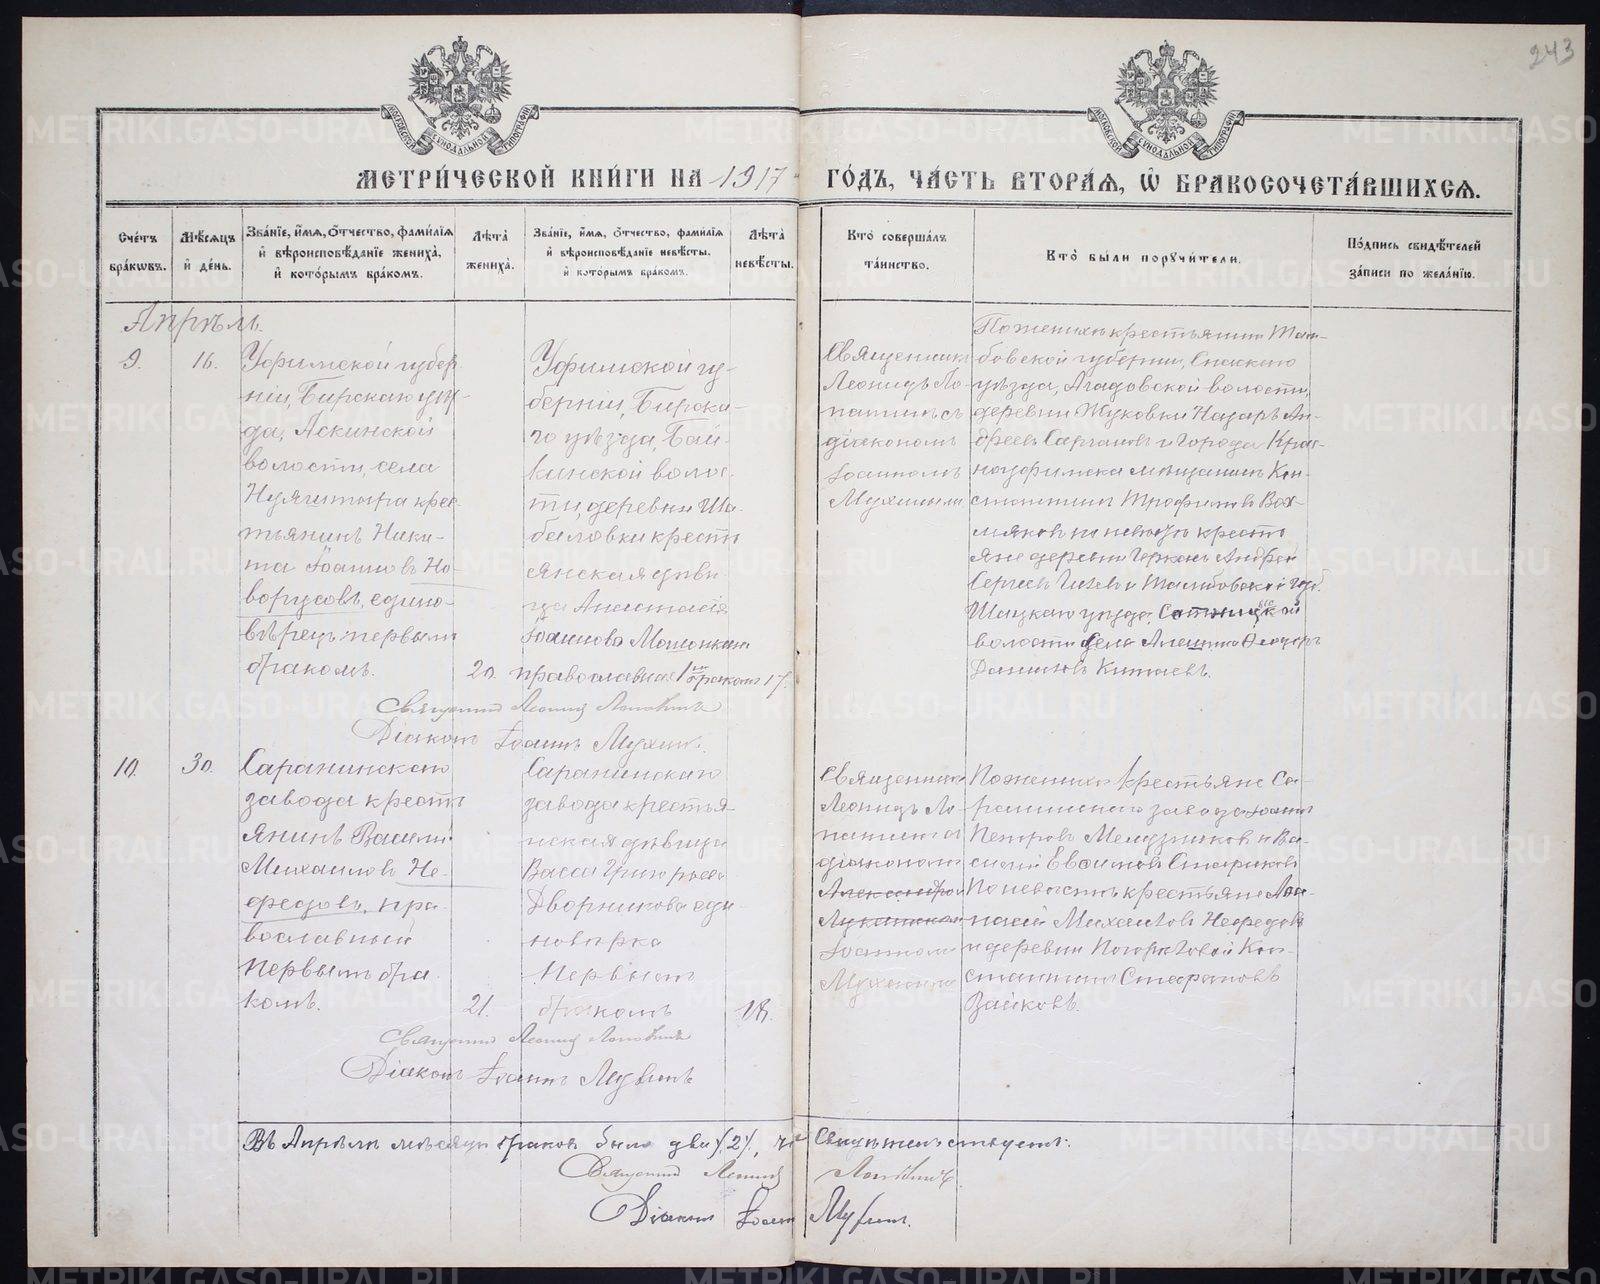 243
МОСКОВСКОЙ СѴНОДАЛЬНОЙ ТИПОГРАФІИ
МОСКОВСКОЙ СѴНОДАЛЬНОЙ ТИПОГРАФІИ
МЕТРИ́ЧЕСКОЙ КНИ́ГИ НА 1917 ГО́ДЪ, ЧА́СТЬ ВТОРА́Ѧ, Ѽ БРАКОСОЧЕТА́ВШИХСѦ.
Сче́тъ бра́кωвъ.
Мѣ́сѧцъ и҆ де́нь.
Зва́нїе, и҆́мѧ, ѻ҆́тчество, фами́лїѧ и҆ вѣроисповѣ́данїе жениха̀, и҆ кото́рымъ бра́комъ.
Лѣ́та жениха̀.
Зва́нїе, и҆́мѧ, ѻ҆́тчество, фами́лїѧ и҆ вѣроисповѣ́данїе невѣ́сты. и҆ кото́рымъ бра́комъ.
Лѣ́та невѣ́сты.
Кто̀ соверша́лъ та́инство.
Кто̀ бы́ли порꙋчи́тели.
По́дпись свидѣ́телей за́писи по жела́нїю.
Апрѣль.
9.
16.
Уфимской губер
ніи, Бирскаго уѣз-
да, Аскинской
волости, села
крес
тьянинъ Ники-
та Іоанновъ Но-
ворусовъ, едино-
вѣрецъ первымъ
бракомъ.
20.
Уфимской гу-
берніи, Бирска-
го уѣзда, Бай-
кинской волос-
ти, деревни Ша-
баловки крестъ
янская дѣви
ца Анастасія
Іоаннова
православная 1ᵐᵇ бракомъ
17.
Священникъ
Леонидъ Ло-
патинъ съ
діакономъ
Іоанномъ
Мухинымъ
По женихѣ крестьянинъ Там-
бовской губерніи, Спаскаго
уѣзда, Агадовской волости,
деревни Жуковки Назаръ Ан-
дреевъ и города Крас-
ноуфимска мѣщанинъ Кон-
стантинъ Трофимовъ Вах-
мяковъ по невѣстѣ крестъ
яне деревни Андрей
Сергѣевъ и Тамбовской губ.
Шацкаго уѣзда,
волости села Ѳеодоръ
Даниловъ Китаевъ.
Священникъ Леонид Лопатинъ
Діаконъ Іоаннъ Мухинъ.
10.
30.
Саранинскаго
завода крестъ
янинъ Василій
Михаиловъ Не-
федовъ, пра-
вославный
первымъ бра
комъ.
21.
Саранинскаго
завода крестья
нская дѣвица
Васса Григорьева
Дворникова еди
новѣрка
первымъ
бракомъ
18.
Священникъ
Леонидъ Ло-
патинъ съ
діакономъ
Александромъ
Іоанномъ
Мухинымъ
По женихѣ крестьяне Са-
ранинскаго завода Іоаннъ
Петровъ и Ва-
силій Стариковъ
По невѣстѣ крестьяне Аѳа-
насій Михаиловъ Нефедовъ
и деревни Кон-
стантинъ Стефановъ
Зайковъ.
Священникъ Леонид Лопатинъ
Діаконъ Іоаннъ Мухинъ
Въ Апрѣлѣ мѣсяцѣ браковъ было два (2), что свидѣтельствуетъ:
Священникъ Леонид Лопатинъ.
Діаконъ Іоаннъ Мухинъ.
METRIKI.GASO-URAL.RU